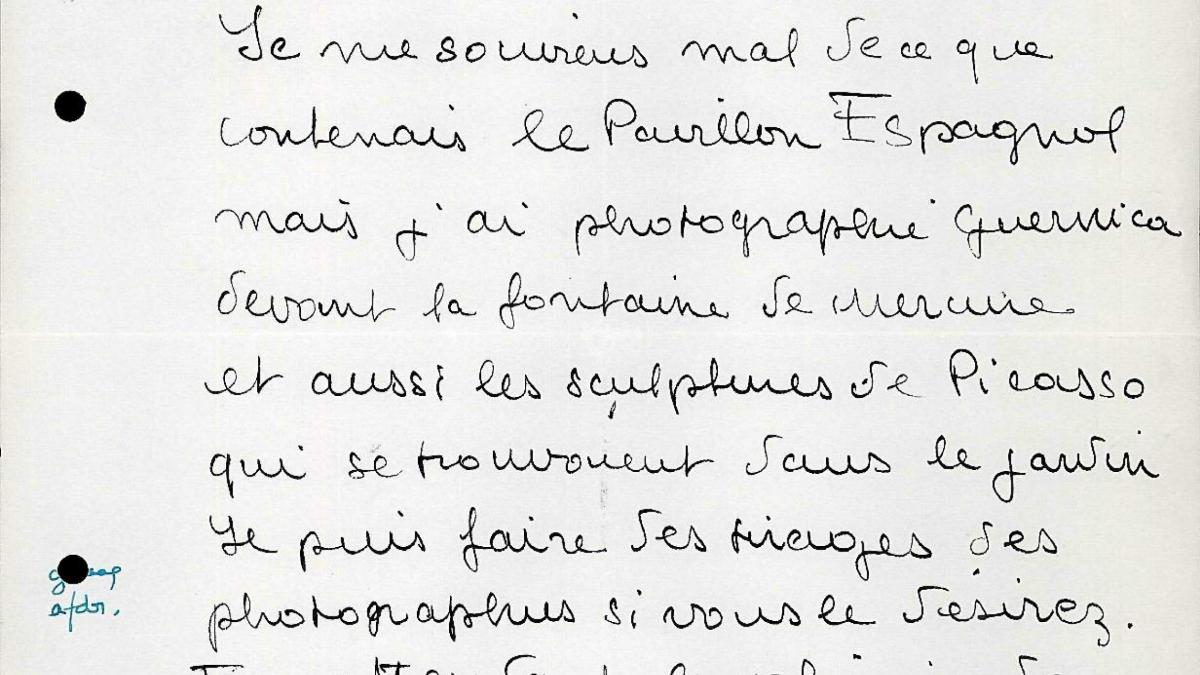 Je me souviens mal de ce que
contenais le Pavillon Espagnol
mais j'ai photographié Guernica
devant la fontaine de Mercure
et aussi les sculptures de Picasso
qui se trouvaient dans le jardin
Je puis faire des tirages des
photographies si vous le désirez.
afdr.